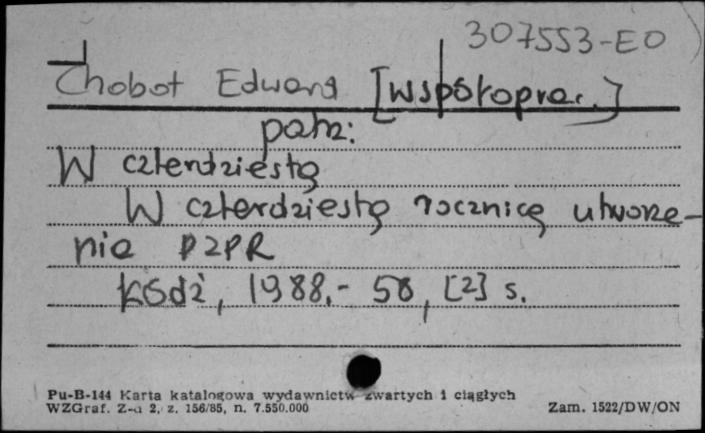 307553-EO
Chobot Edward [współoprac.]
patrz:
W czterdziestą
W czterdziestą rocznicę utworze-
nia PZPR
Łódź, 1988.- 58, [2] s.
Pu-B-144 Karta katalogowa wydawnictw zwartych i ciągłych
WZGraf. Z-d 2, z. 156/85, n. 7.550.000
Zam. 1522/DW/ON